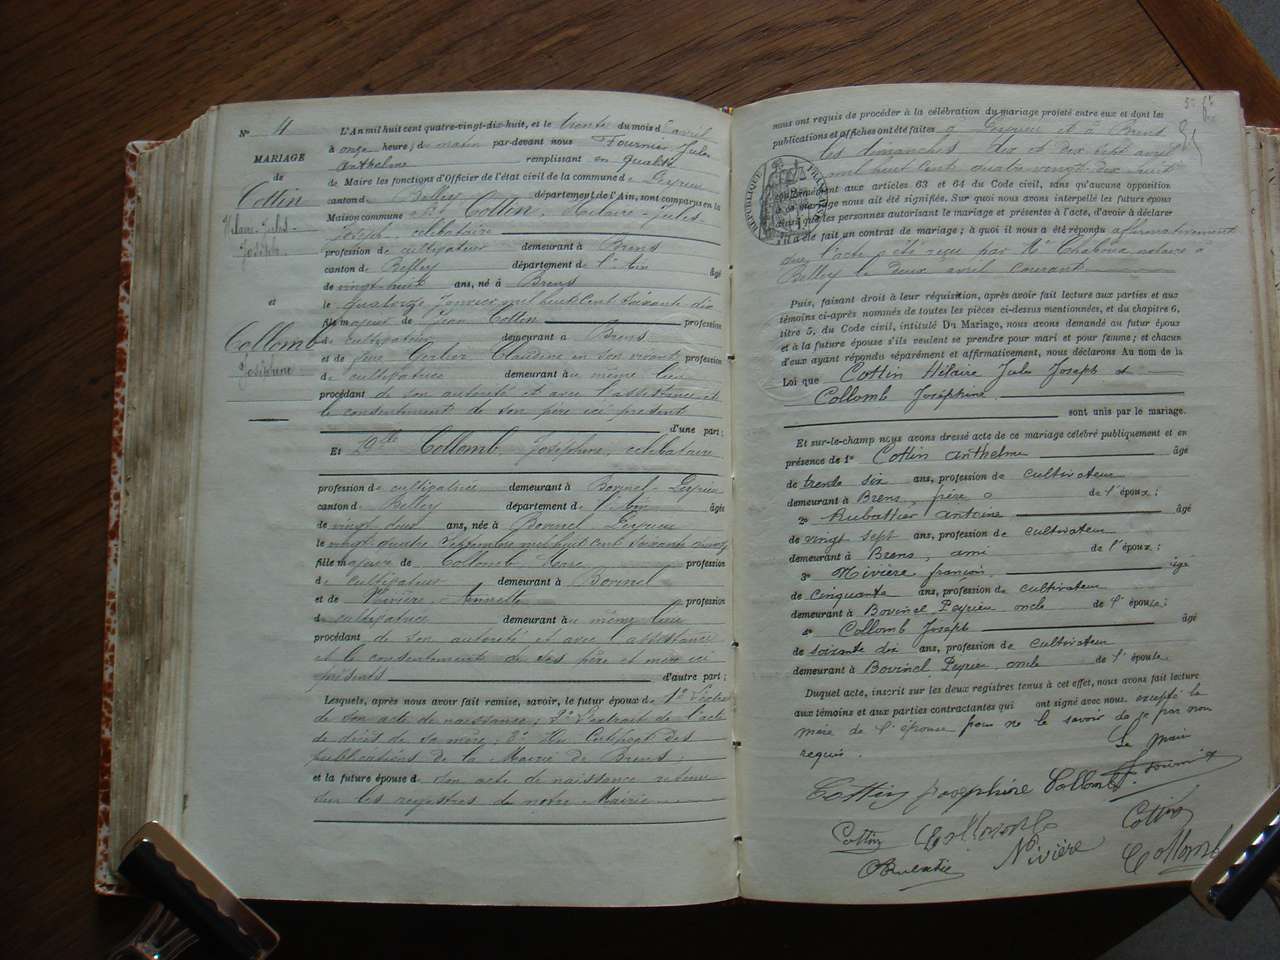 N° 4
MARIAGE
de
Cottin
Hilaire-Jules-
Joseph
et
Collomb
Joséphine
L'An mil huit cent quatre-vingt-dix-huit, et le trente du mois d'avril
à onze heures du matin par-devant nous Fournier, Jules
Anthelme remplissant en qualité
de Maire les fonctions d'Officier de l'état civil de la commune de Peyrieu
canton de Belley département de l'Ain, sont comparus en la
Maison commune Cottin, Hilaire-Jules-
Joseph, célibataire
profession de cultivateur demeurant à Brens
canton de Belley département de l'Ain âgé
de vingt huit ans, né à Brens
le quatorze Janvier mil huit cent soixante dix
fils majeur de Jean Cottin profession
de cultivateur demeurant à Brens
et de feue Claudine en son vivant profession
de cultivatrice demeurant au même lieu
procédant de son autorité et avec l'assistance et
le consentement de son père ici présent
d'une part;
Et Dlle Collomb, Joséphine, célibataire
profession de cultivatrice demeurant à Bovinel, Peyrieu
canton de Belley département de l'Ain âgée
de vingt ans, née à Bovinel Peyrieu
le vingt quatre mil huit cent soixante
fille majeure de Collomb profession
de cultivateur demeurant à Bovinel
et de Nivière, Annette profession
de cultivatrice demeurant au même lieu
procédant de son autorité et avec l'assistance
et le consentement de ses père et mère ici
présents d'autre part;
Lesquels, après nous avoir fait remise, savoir, le futur époux de 1° l'extrait
de son acte de naissance; 2° l'extrait de l'acte
de décès de sa mère; 3° du Certificat des
publications de la Mairie de Brens;
et la future épouse de son acte de naissance retenu
sur les registres de notre Mairie
nous ont requis de procéder à la célébration du mariage projeté entre eux et dont les
publications et affiches ont été faites à Peyrieu et à Brens
les dimanches dix et dix sept avril
mil huit cent quatre vingt dix huit
RÉPUBLIQUE FRANÇAISE
conformément aux articles 63 et 64 du Code civil, sans qu'aucune opposition
à ce mariage nous ait été signifiée. Sur quoi nous avons interpellé les futurs époux
ainsi que les personnes autorisant le mariage et présentes à l'acte, d'avoir à déclarer
s'il a été fait un contrat de mariage; à quoi il nous a été répondu affirmativement
que l'acte a été reçu par Me notaire à
Belley le deux avril courant
Puis, faisant droit à leur réquisition, après avoir fait lecture aux parties et aux
témoins ci-après nommés de toutes les pièces ci-dessus mentionnées, et du chapitre 6,
titre 5, du Code civil, intitulé Du Mariage, nous avons demandé au futur époux
et à la future épouse s'ils veulent se prendre pour mari et pour femme; et chacun
d'eux ayant répondu séparément et affirmativement, nous déclarons Au nom de la
Loi que Cottin Hilaire Jules Joseph et
Collomb Joséphine
sont unis par le mariage.
Et sur-le-champ nous avons dressé acte de ce mariage célébré publiquement et en
présence de 1° Cottin Anthelme âgé
de trente six ans, profession de cultivateur
demeurant à Brens, frère de l'époux;
2° Rubattier Antoine âgé
de vingt sept ans, profession de cultivateur
demeurant à Brens, ami de l'époux;
3° Nivière françois, âgé
de Cinquante ans, profession de cultivateur
demeurant à Bovinel, Peyrieu, oncle de l'épouse;
4° Collomb Joseph âgé
de soixante dix ans, profession de cultivateur
demeurant à Bovinel, Peyrieu, oncle de l'épouse
Duquel acte, inscrit sur les deux registres tenus à cet effet, nous avons fait lecture
aux témoins et aux parties contractantes qui ont signé avec nous excepté la
mère de l'épouse pour ne le savoir de ce par nous
requis.
Le Maire
Cottin Joséphine Collomb
Cottin Collomb Cottin
Nivière Collomb